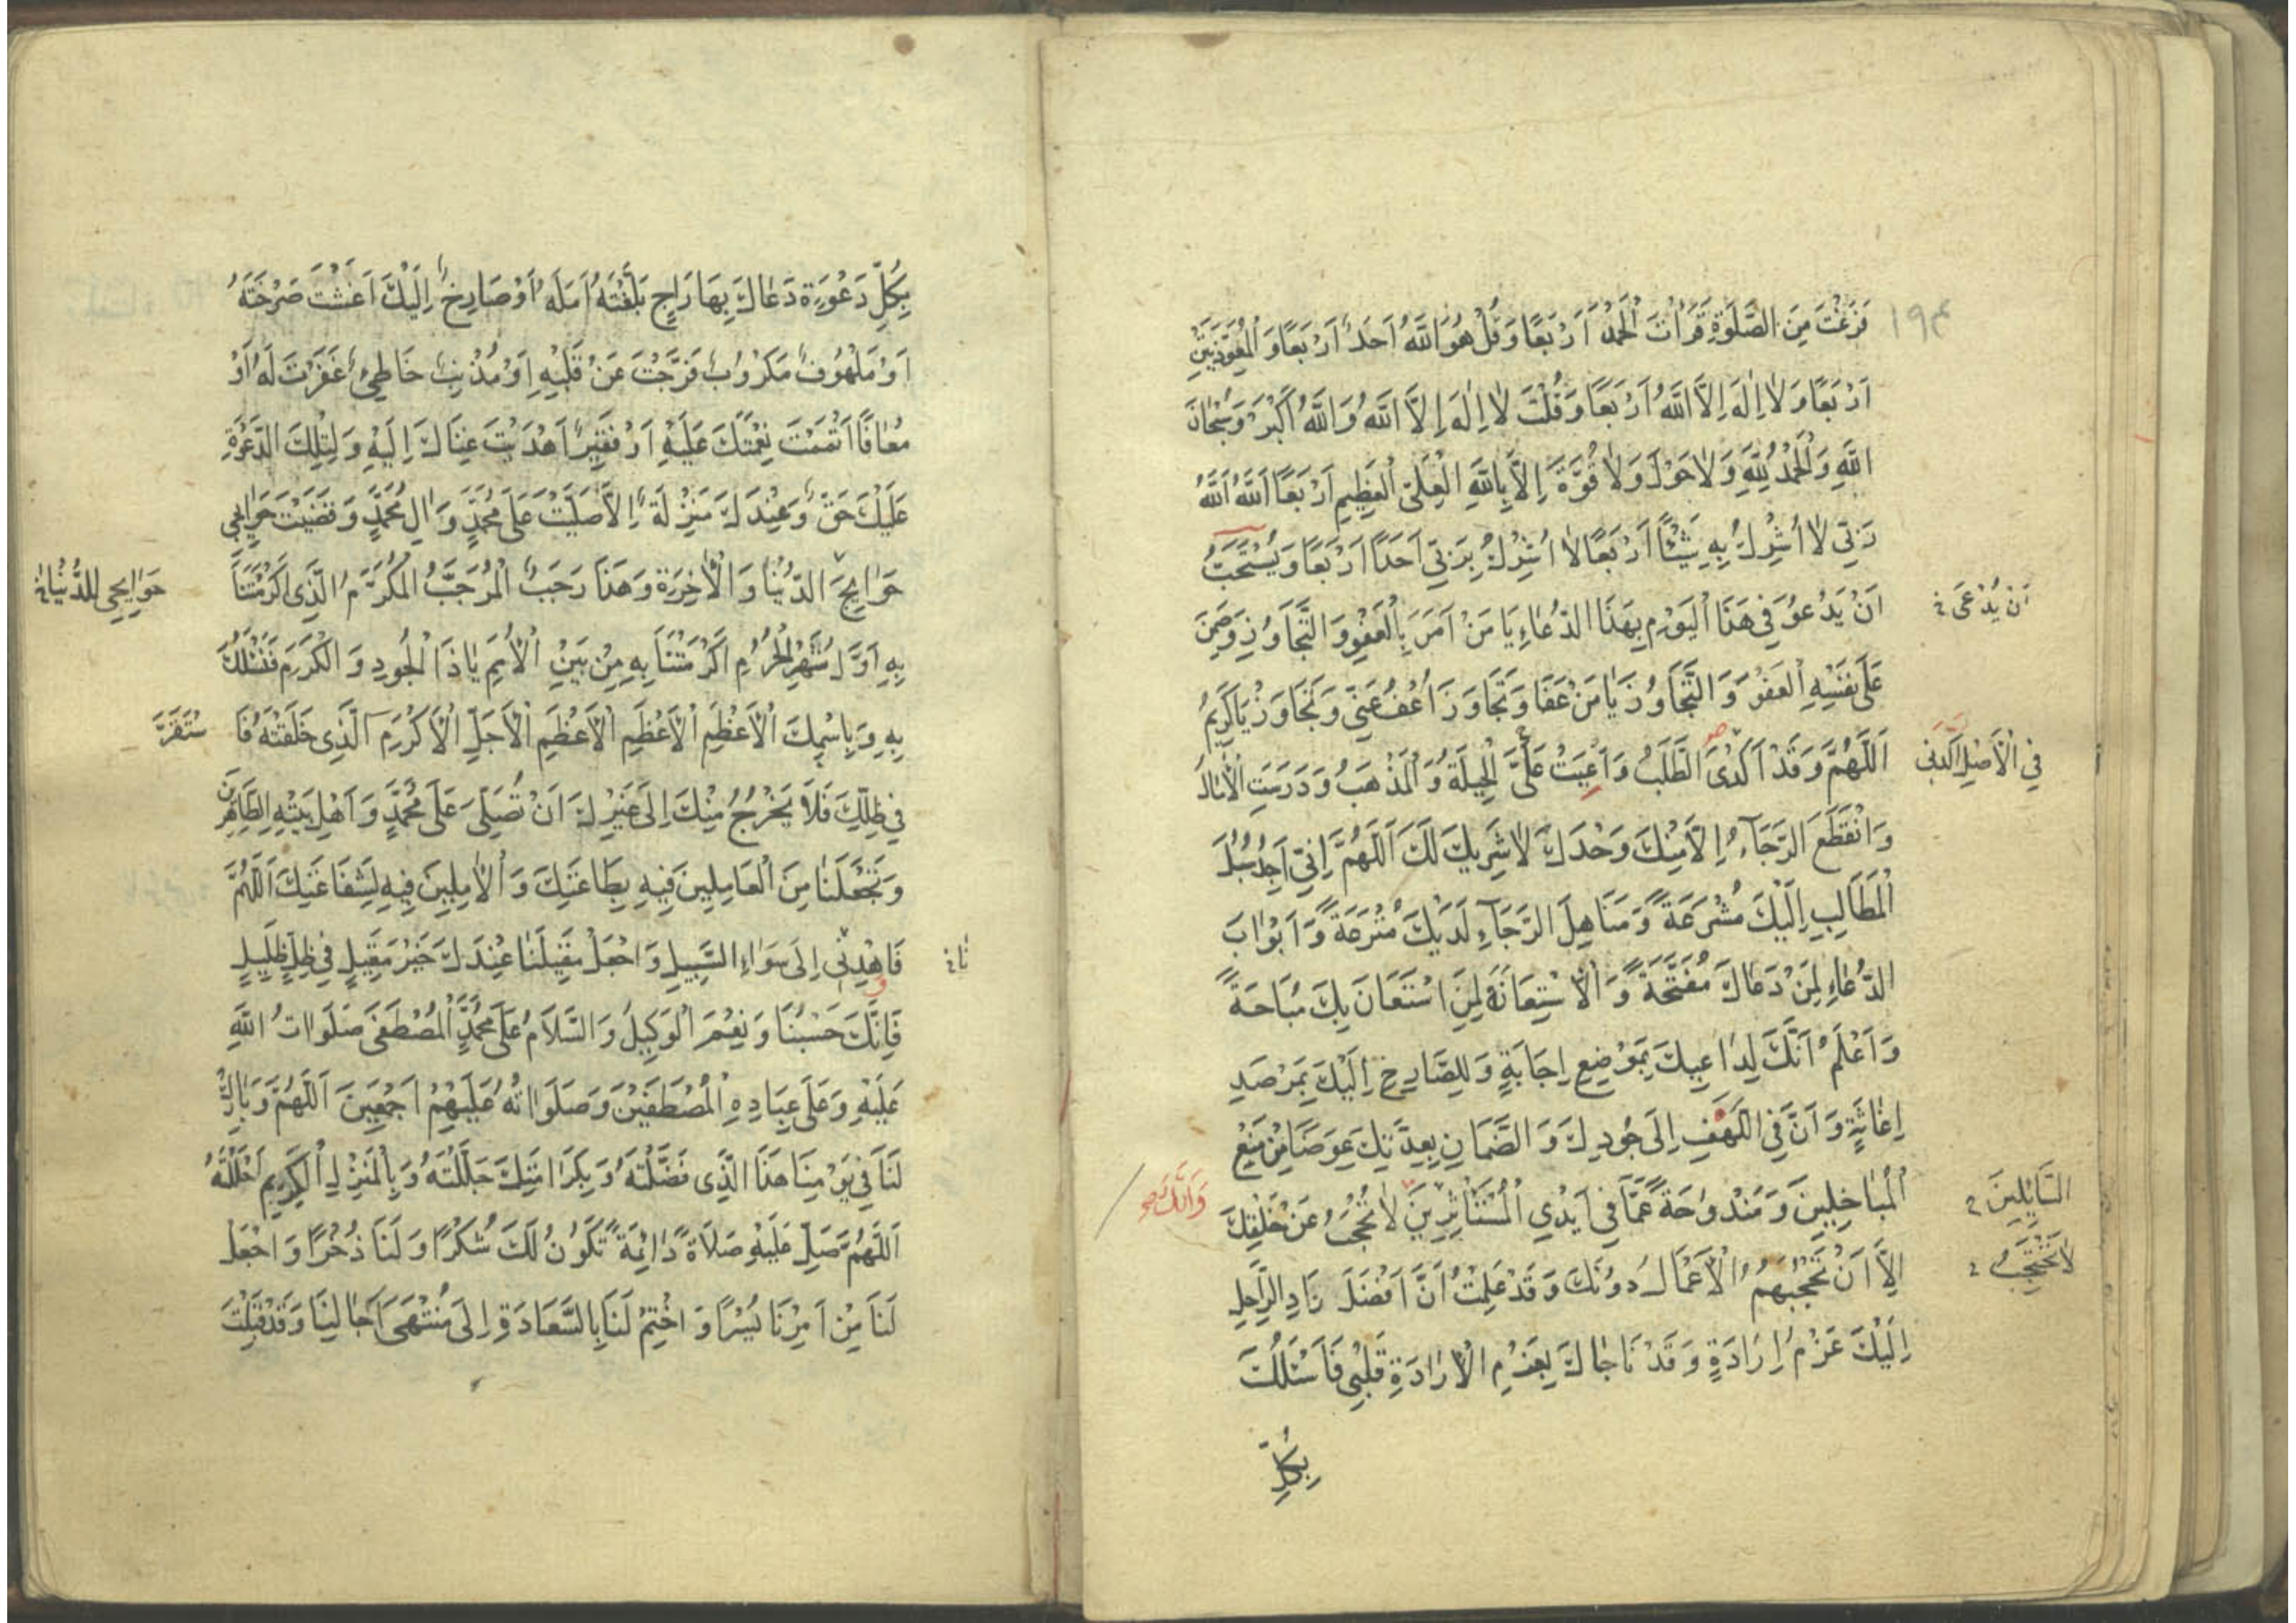 ١٩٣
فَرَغْتَ مِنَ الصَّلَوٰةِ قَرَأْتَ الْحَمْدَ اَرْبَعًا وَقُلْ هُوَ اللَّهُ اَحَدٌ اَرْبَعًا وَالْمُعَوِّذَتَيْنِ
اَرْبَعًا وَلَا اِلٰهَ اِلَّا اللَّهُ اَرْبَعًا وَقُلْتَ لَا اِلٰهَ اِلَّا اللَّهُ وَاللَّهُ اَكْبَرُ وَسُبْحَانَ
اللَّهِ وَالْحَمْدُ لِلَّهِ وَلَا حَوْلَ وَلَا قُوَّةَ اِلَّا بِاللَّهِ الْعَلِيِّ الْعَظِيمِ اَرْبَعًا اَللَّهُ اَللَّهُ
رَبِّي لَا اُشْرِكُ بِهِ شَيْئًا اَرْبَعًا لَا اُشْرِكُ بِرَبِّي اَحَدًا اَرْبَعًا وَيُسْتَحَبُّ
اَنْ يَدْعُوَ فِي هَذَا الْيَوْمِ بِهَذَا الدُّعَاءِ يَا مَنْ اَمَرَ بِالْعَفْوِ وَالتَّجَاوُزِ وَضَمِنَ
اَنْ يُدْعَى خ
عَلَى نَفْسِهِ الْعَفْوَ وَالتَّجَاوُزَ يَا مَنْ عَفَا وَتَجَاوَزَ اُعْفُ عَنِّي وَتَجَاوَزْ يَا كَرِيمُ
اَللَّهُمَّ وَقَدْ اَكْدَى الطَّلَبُ وَاَعْيَتْ عَلَيَّ الْحِيلَةُ وَالْمَذْهَبُ وَدَرَسَتِ الْاٰمَالُ
فِي الْاَصْلِ اَكْدَنِي
وَانْقَطَعَ الرَّجَاۤءُ اِلَّا مِنْكَ وَحْدَكَ لَا شَرِيكَ لَكَ اَللَّهُمَّ اِنِّي اَجِدُ سُبُلَ
الْمَطَالِبِ اِلَيْكَ مُشْرَعَةً وَمَنَاهِلَ الرَّجَاۤءِ لَدَيْكَ مُتْرَعَةً وَاَبْوَابَ
الدُّعَاءِ لِمَنْ دَعَاكَ مُفَتَّحَةً وَالْاِسْتِعَانَةَ لِمَنِ اسْتَعَانَ بِكَ مُبَاحَةً
وَاَعْلَمُ اَنَّكَ لِدَاعِيكَ بِمَوْضِعِ اِجَابَةٍ وَلِلصَّارِخِ اِلَيْكَ بِمَرْصَدِ
اِغَاثَةٍ وَاَنَّ فِي اللَّهَفِ اِلَى جُودِكَ وَالضَّمَانِ بِعِدَتِكَ عِوَضًا مِنْ مَنْعِ
الْبَاخِلِينَ وَمَنْدُوحَةً عَمَّا فِي اَيْدِي الْمُسْتَأْثِرِينَ لَا تُحْجَبُ عَنْ خَلْقِكَ
وَاَنَّكَ صح
السَّاۤئِلِينَ خ
لَا تَحْتَجِبُ خ
اِلَّا اَنْ تَحْجُبَهُمُ الْاَعْمَالُ دُونَكَ وَقَدْ عَلِمْتُ اَنَّ اَفْضَلَ زَادِ الرَّاحِلِ
اِلَيْكَ عَزْمُ اِرَادَةٍ وَقَدْ نَاجَاكَ بِعَزْمِ الْاِرَادَةِ قَلْبِي فَاَسْئَلُكَ
بِكُلِّ
بِكُلِّ دَعْوَةٍ دَعَاكَ بِهَا رَاجٍ بَلَّغْتَهُ اَمَلَهُ اَوْ صَارِخٍ اِلَيْكَ اَغَثْتَ صَرْخَتَهُ
اَوْ مَلْهُوفٍ مَكْرُوبٍ فَرَّجْتَ عَنْ قَلْبِهِ اَوْ مُذْنِبٍ خَاطِئٍ غَفَرْتَ لَهُ اَوْ
مُعَافًا اَتْمَمْتَ نِعْمَتَكَ عَلَيْهِ اَوْ فَقِيرٍ اَهْدَيْتَ غِنَاكَ اِلَيْهِ وَلِتِلْكَ الدَّعْوَةِ
عَلَيْكَ حَقٌّ وَعِنْدَكَ مَنْزِلَةٌ اِلَّا صَلَّيْتَ عَلَى مُحَمَّدٍ وَاٰلِ مُحَمَّدٍ وَقَضَيْتَ حَوَاۤئِجِي
حَوَاۤئِجَ الدُّنْيَا وَالْاٰخِرَةِ وَهَذَا رَجَبٌ الْمُرَجَّبُ الْمُكَرَّمُ الَّذِي اَكْرَمْتَنَا
حَوَاۤئِجِي لِلدُّنْيَا خ
بِهِ اَوَّلُ اَشْهُرِ الْحُرُمِ اَكْرَمْتَنَا بِهِ مِنْ بَيْنِ الْاُمَمِ يَا ذَا الْجُودِ وَالْكَرَمِ فَنَسْئَلُكَ
بِهِ وَبِاسْمِكَ الْاَعْظَمِ الْاَعْظَمِ الْاَعْظَمِ الْاَجَلِّ الْاَكْرَمِ الَّذِي خَلَقْتَهُ فَا
سْتَقَرَّ
فِي ظِلِّكَ فَلَا يَخْرُجُ مِنْكَ اِلَى غَيْرِكَ اَنْ تُصَلِّيَ عَلَى مُحَمَّدٍ وَاَهْلِ بَيْتِهِ الطَّاهِرِينَ
وَتَجْعَلَنَا مِنَ الْعَامِلِينَ فِيهِ بِطَاعَتِكَ وَالْاٰمِلِينَ فِيهِ لِشَفَاعَتِكَ اَللَّهُمَّ
فَاهْدِنِي اِلَى سَوَاءِ السَّبِيلِ وَاجْعَلْ مَقِيلَنَا عِنْدَكَ خَيْرَ مَقِيلٍ فِي ظِلٍّ ظَلِيلٍ
نَا خ
و
فَاِنَّكَ حَسْبُنَا وَنِعْمَ الْوَكِيلُ وَالسَّلَامُ عَلَى مُحَمَّدٍ الْمُصْطَفَى صَلَوَاتُ اللَّهِ
عَلَيْهِ وَعَلَى عِبَادِهِ الْمُصْطَفَيْنَ وَصَلَوَاتُهُ عَلَيْهِمْ اَجْمَعِينَ اَللَّهُمَّ وَبَارِكْ
لَنَا فِي يَوْمِنَا هَذَا الَّذِي فَضَّلْتَهُ وَبِكَرَامَتِكَ جَلَّلْتَهُ وَبِالْمَنْزِلِ الْكَرِيمِ اَحْلَلْتَهُ
اَللَّهُمَّ صَلِّ عَلَيْهِ صَلَاةً دَاۤئِمَةً تَكُونُ لَكَ شُكْرًا وَلَنَا ذُخْرًا وَاجْعَلْ
لَنَا مِنْ اَمْرِنَا يُسْرًا وَاخْتِمْ لَنَا بِالسَّعَادَةِ اِلَى مُنْتَهَى اٰجَالِنَا وَقَدْ قَبِلْتَ